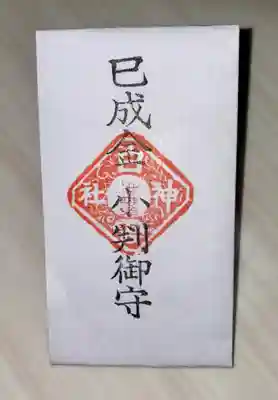 巳成金 小判御守
神社